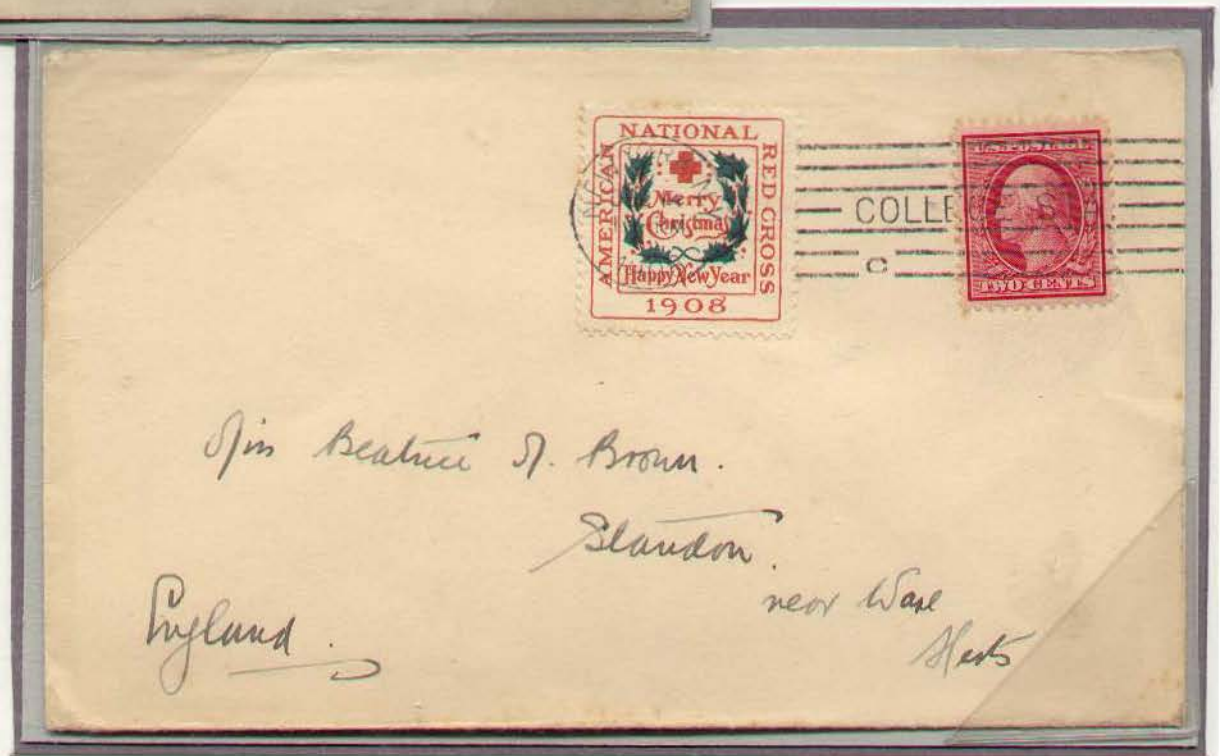 AMERICAN
NATIONAL
RED CROSS
Merry
Christmas
Happy New Year
1908
COLLEGE ST
C
U.S. POSTAGE
TWO CENTS
Miss Beatrice M. Brown.
Standon.
near Ware
Herts
England.